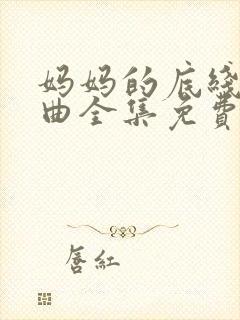 妈妈的底线
曲全集免费
唇红